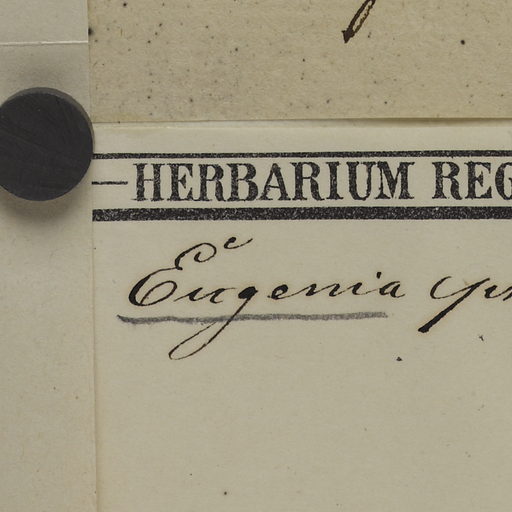 HERBARIUM REG
Eugenia